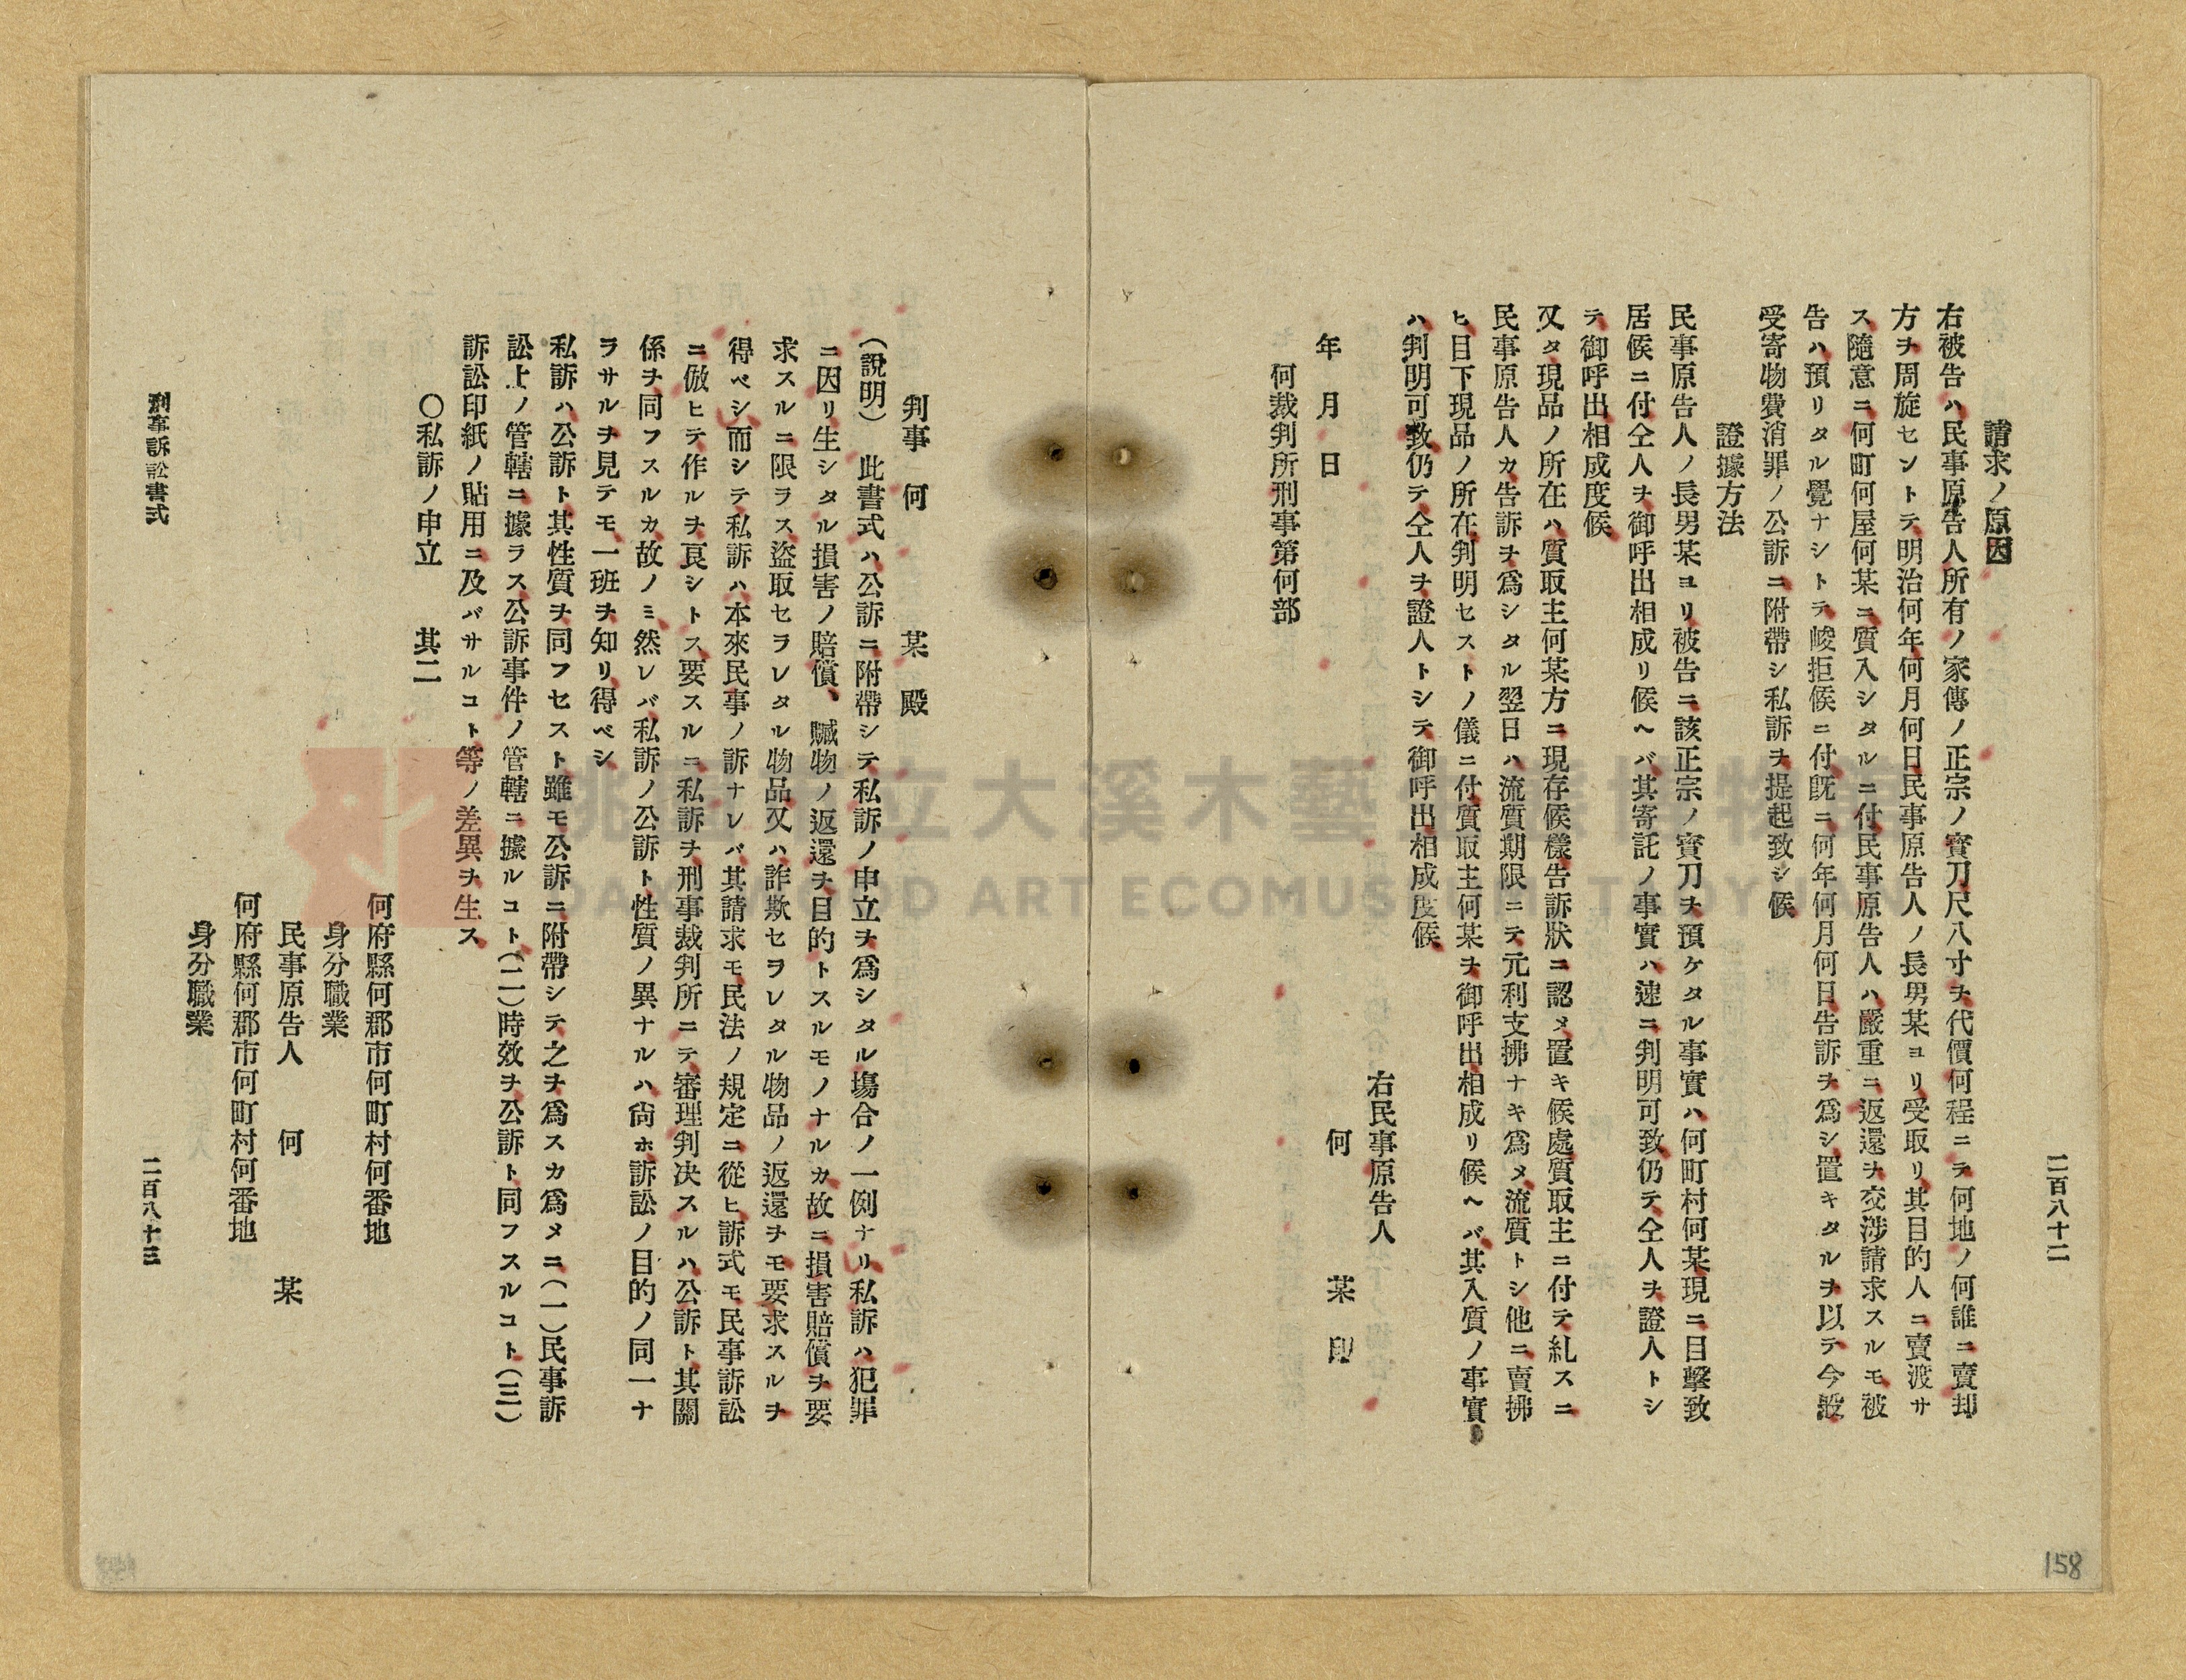 二百八十二
請求ノ原因
右被告ハ民事原告人所有ノ家傳ノ正宗ノ寳刀尺八寸ヲ代價何程ニテ何地ノ何誰ニ賣却
方ヲ周旋セントテ明治何年何月何日民事原告人ノ長男某ヨリ受取リ其目的人ニ賣渡サ
ス隨意ニ何町何屋何某ニ質入シタルニ付民事原告人ハ嚴重ニ返還ヲ交涉請求スルモ被
告ハ預リタル覺ナシトテ峻拒候ニ付既ニ何年何月何日告訴ヲ爲シ置キタルヲ以テ今般
受寄物費消罪ノ公訴ニ附帶シ私訴ヲ提起致シ候
證據方法
民事原告人ノ長男某ヨリ被告ニ該正宗ノ寳刀ヲ預ケタル事實ハ何町村何某現ニ目擊致
居候ニ付仝人ヲ御呼出相成リ候ヘバ其寄託ノ事實ハ速ニ判明可致仍テ仝人ヲ證人トシ
テ御呼出相成度候
又タ現品ノ所在ハ質取主何某方ニ現存候樣告訴狀ニ認メ置キ候處質取主ニ付テ糺スニ
民事原告人カ告訴ヲ爲シタル翌日ハ流質期限ニテ元利支拂ナキ爲メ流質トシ他ニ賣拂
ヒ目下現品ノ所在判明セストノ儀ニ付質取主何某ヲ御呼出相成リ候ヘバ其入質ノ事實
ハ判明可致仍テ仝人ヲ證人トシテ御呼出相成度候
右民事原告人
年　月　日　何　某　印
何裁判所刑事第何部
158
判事　何　某　殿
（說明）　此書式ハ公訴ニ附帶シテ私訴ノ申立ヲ爲シタル塲合ノ一例ナリ私訴ハ犯罪
ニ因リ生シタル損害ノ賠償、贓物ノ返還ヲ目的トスルモノナルカ故ニ損害賠償ヲ要
求スルニ限ラス盜取セラレタル物品又ハ詐欺セラレタル物品ノ返還ヲモ要求スルヲ
得ベシ而シテ私訴ハ本來民事ノ訴ナレバ其請求モ民法ノ規定ニ從ヒ訴式モ民事訴訟
ニ倣ヒテ作ルヲ良シトス要スルニ私訴ヲ刑事裁判所ニテ審理判决スルハ公訴ト其關
係ヲ同フスルカ故ノミ然レバ私訴ノ公訴ト性質ノ異ナルハ尙ホ訴訟ノ目的ノ同一ナ
ラサルヲ見テモ一班ヲ知リ得ベシ
私訴ハ公訴ト其性質ヲ同フセスト雖モ公訴ニ附帶シテ之ヲ爲スカ爲メニ（一）民事訴
訟上ノ管轄ニ據ラス公訴事件ノ管轄ニ據ルコト（二）時效ヲ公訴ト同フスルコト（三）
訴訟印紙ノ貼用ニ及バサルコト等ノ差異ヲ生ス
〇私訴ノ申立　其二
何府縣何郡市何町村何番地
身分職業
民事原告人　何　某
何府縣何郡市何町村何番地
身分職業
刑事訴訟書式　二百八十三
桃園市立大溪木藝生態博物館
DAXI WOOD ART ECOMUSEUM, TAOYUAN